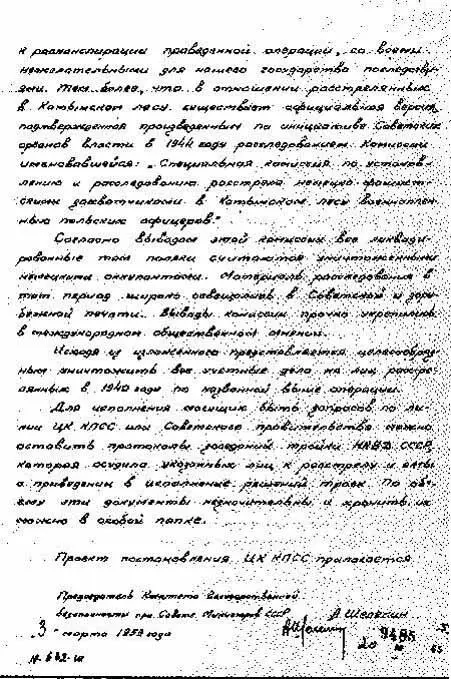 к расконспирации проведенной операции, со всеми
нежелательными для нашего государства последстви-
ями. Тем более, что в отношении расстрелянных
в Катынском лесу существует официальная версия,
подтвержденная произведенным по инициативе Советских
органов власти в 1944 году расследованием Комиссии
именовавшейся: „Специальная комиссия по установ-
лению и расследованию расстрела немецко-фашист-
скими захватчиками в Катынском лесу военноплен-
ных польских офицеров."
Согласно выводам этой комиссии все ликвиди-
рованные там поляки считаются уничтоженными
немецкими оккупантами. Материалы расследования в
тот период широко освещались в Советской и зару-
бежной печати. Выводы комиссии прочно укрепились
в международном общественном мнении.
Исходя из изложенного представляется целесообраз-
ным уничтожить все учетные дела на лиц, расстре-
лянных в 1940 году по названной выше операции.
Для исполнения могущих быть запросов по ли-
нии ЦК КПСС или Советского правительства можно
оставить протоколы заседаний тройки НКВД СССР,
которая осудила указанных лиц к расстрелу и акты
о приведении в исполнение решений троек. По объ-
ему эти документы незначительны и хранить их
можно в особой папке.
Проект постановления ЦК КПСС прилагается.
Председатель Комитета Государственной
безопасности при Совете Министров СССР
А. Шелепин
„3" марта 1959 года
9485
№ 632-ш